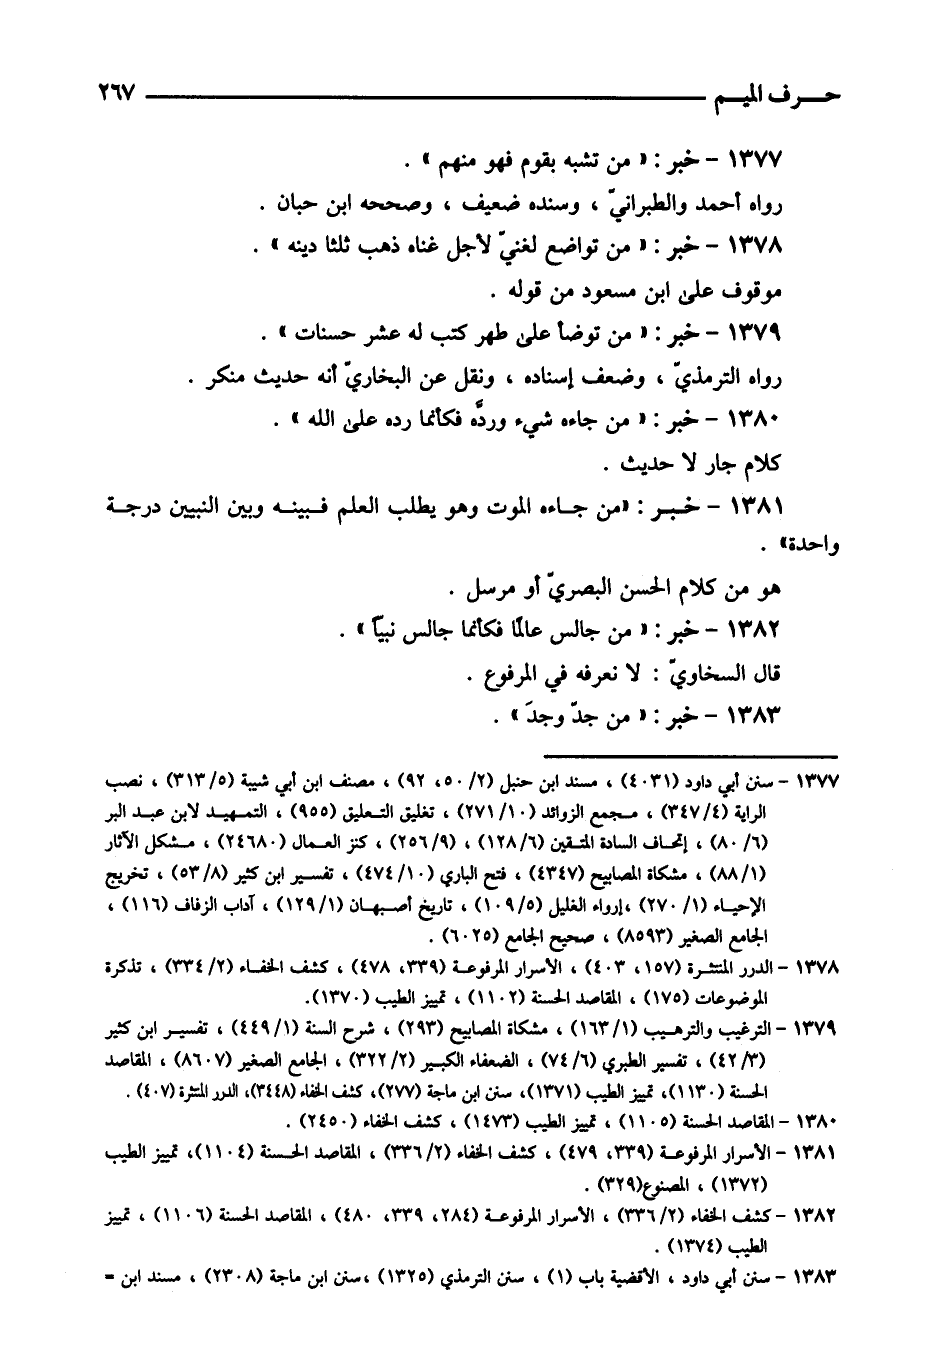 حـــرف الميـــم ٢٦٧
١٣٧٧ - خبر : « من تشبه بقوم فهو منهم » .
رواه أحمد والطبرانيّ ، وسنده ضعيف ، وصححه ابن حبان .
١٣٧٨ - خبر : « من تواضع لغنيّ لأجل غناه ذهب ثلثا دينه » .
موقوف على ابن مسعود من قوله .
١٣٧٩ - خبر : « من توضأ على طهر كتب له عشر حسنات » .
رواه الترمذيّ ، وضعف إسناده ، ونقل عن البخاريّ أنه حديث منكر .
١٣٨٠ - خبر : « من جاءه شيء وردَّه فكأنما رده على الله » .
كلام جار لا حديث .
١٣٨١ - خـبـر : «من جـاءه الموت وهو يطلب العلم فـبينـه وبين النبيين درجـة
واحدة» .
هو من كلام الحسن البصريّ أو مرسل .
١٣٨٢ - خبر : « من جالس عالمًا فكأنما جالس نبيّاً » .
قال السخاويّ : لا نعرفه في المرفوع .
١٣٨٣ - خبر : « من جدّ وجدَ » .
١٣٧٧ - سنن أبي داود (٤٠٣١) ، مسند ابن حنبل (٢/ ٥٠، ٩٢) ، مصنف ابن أبي شيبة (٥/ ٣١٣) ، نصب
الراية (٤/ ٣٤٧) ، مـجمع الزوائد (١٠/ ٢٧١) ، تغليق التـعليق (٩٥٥) ، التمـهيـد لابن عبـد البر
(٦/ ٨٠) ، إتحـاف السادة المتـقين (٦/ ١٢٨) ، (٩/ ٢٥٦) ، كنز العـمال (٢٤٦٨٠) ، مـشكل الآثار
(١/ ٨٨) ، مشكاة المصابيح (٤٣٤٧) ، فتح الباري (١٠/ ٤٧٤) ، تفسـير ابن كثير (٨/ ٥٣) ، تخريج
الإحيـاء (١/ ٢٧٠) ،إرواء الغليل (٥/ ١٠٩) ، تاريخ أصـبهـان (١/ ١٢٩) ، آداب الزفاف (١١٦) ،
الجامع الصغير (٨٥٩٣) ، صحيح الجامع (٦٠٢٥) .
١٣٧٨ - الدرر المنتثـرة (١٥٧، ٤٠٣) ، الأسرار المرفوعـة (٣٣٩، ٤٧٨) ، كشف الخفـاء (٢/ ٣٣٤) ، تذكرة
الموضوعات (١٧٥) ، المقاصد الحسنة (١١٠٢) ، تمييز الطيب (١٣٧٠).
١٣٧٩ - الترغيب والترهـيب (١/ ١٦٣) ، مشكاة المصابيح (٢٩٣) ، شرح السنة (١/ ٤٤٩) ، تفسيـر ابن كثير
(٣/ ٤٢) ، تفسير الطبري (٦/ ٧٤) ، الضعفاء الكبـير (٢/ ٣٢٢) ، الجامع الصغير (٨٦٠٧) ، المقاصد
الحسنة (١١٣٠)، تمييز الطيب (١٣٧١)، سنن ابن ماجة (٢٧٧)، كشف الخفاء (٣٤٤٨)، الدرر المنتثرة (٤٠٧) .
١٣٨٠ - المقاصد الحسنة (١١٠٥) ، تمييز الطيب (١٤٧٣) ، كشف الخفاء (٢٤٥٠) .
١٣٨١ - الأسرار المرفوعـة (٣٣٩، ٤٧٩) ، كشف الخفاء (٢/ ٣٣٦) ، المقاصد الحـسنة (١١٠٤)، تمييز الطيب
(١٣٧٢) ، المصنوع(٣٢٩) .
١٣٨٢ - كشف الخفاء (٢/ ٣٣٦) ، الأسرار المرفوعـة (٢٨٤، ٣٣٩، ٤٨٠) ، المقاصد الحسنة (١١٠٦) ، تمييز
الطيب (١٣٧٤) .
١٣٨٣ - سنن أبي داود ، الأقضية باب (١) ، سنن الترمذي (١٣٢٥) ،سنن ابن ماجة (٢٣٠٨) ، مسند ابن =